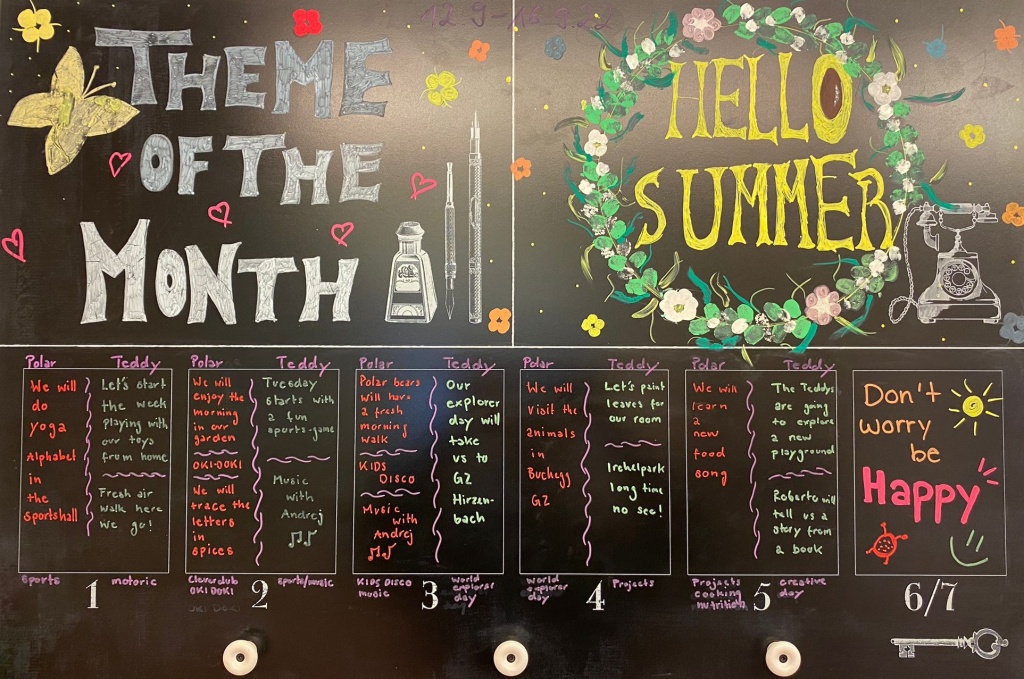 12.9-16.9.22
THEME
OF THE
MONTH
HELLO
SUMMER
Polar
We will
do
yoga
Alphabet
in
the
sportshall
Teddy
Let's start
the week
playing with
our toys
from home
Fresh air
walk here
we go!
sports
motoric
1
Polar
We will
enjoy the
morning
in our
garden
OKI-DOKI
We will
trace the
letters
in
spices
Teddy
Tuesday
starts with
a fun
sports-game
Music
with
Andrej
Cleverclub
OKI DOKI
sports/music
2
Polar
Polar bears
will have
a fresh
morning
walk
KIDS
DISCO
Music
with
Andrej
Teddy
Our
explorer
day will
take
us to
GZ
Hirzen-
bach
KIDS DISCO
music
world
explorer
day
3
Polar
We will
visit the
animals
in
Buchegg
GZ
Teddy
Let's paint
leaves for
our room
Irchelpark
long time
no see!
world
explorer
day
Projects
4
Polar
We will
learn
a
new
food
song
Teddy
The Teddys
are going
to explore
a new
playground
Roberto will
tell us a
story from
a book
Projects
cooking
nutrition
creative
day
5
Don't
worry
be
Happy
6/7